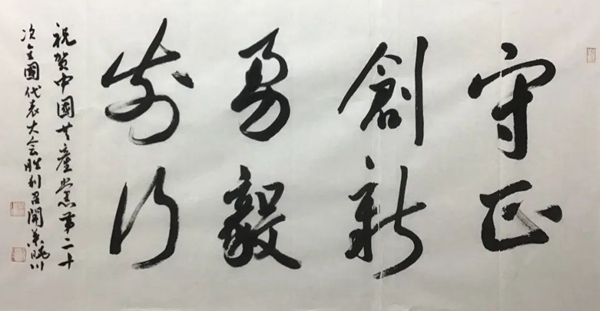 守正
創新
勇毅
前行
祝贺中國共產党第二十
次全國代表大会胜利召開